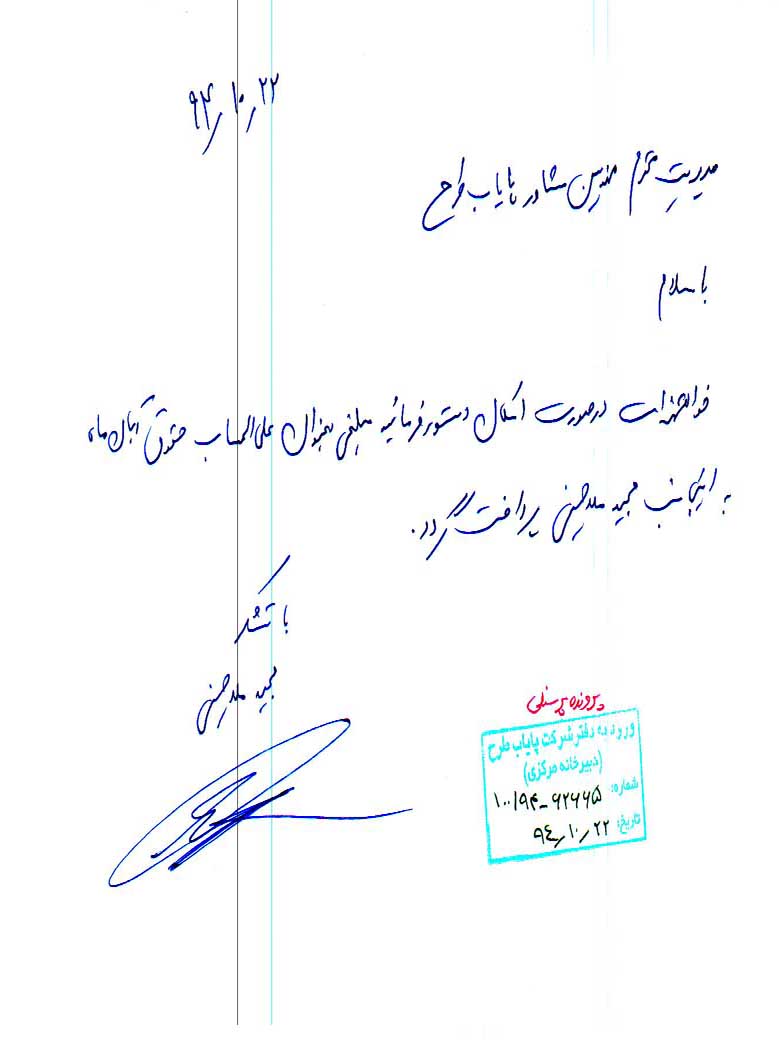 ۹۴/۱۰/۲۲
مدیریت محترم مهندسین مشاور پایاب طرح
باسلام
خواهشمند است در صورت امکان دستور فرمائید مبلغی بعنوان علی الحساب حقوق آبان ماه
به اینجانب مجید پرداخت گردد.
با تشکر
مجید
پرونده پرسنلی
ورود به دفتر شرکت پایاب طرح
(دبیرخانه مرکزی)
شماره: ۱۰۰/۹۴-۶۲۶۶۵
تاریخ: ۹۴/۱۰/۲۲